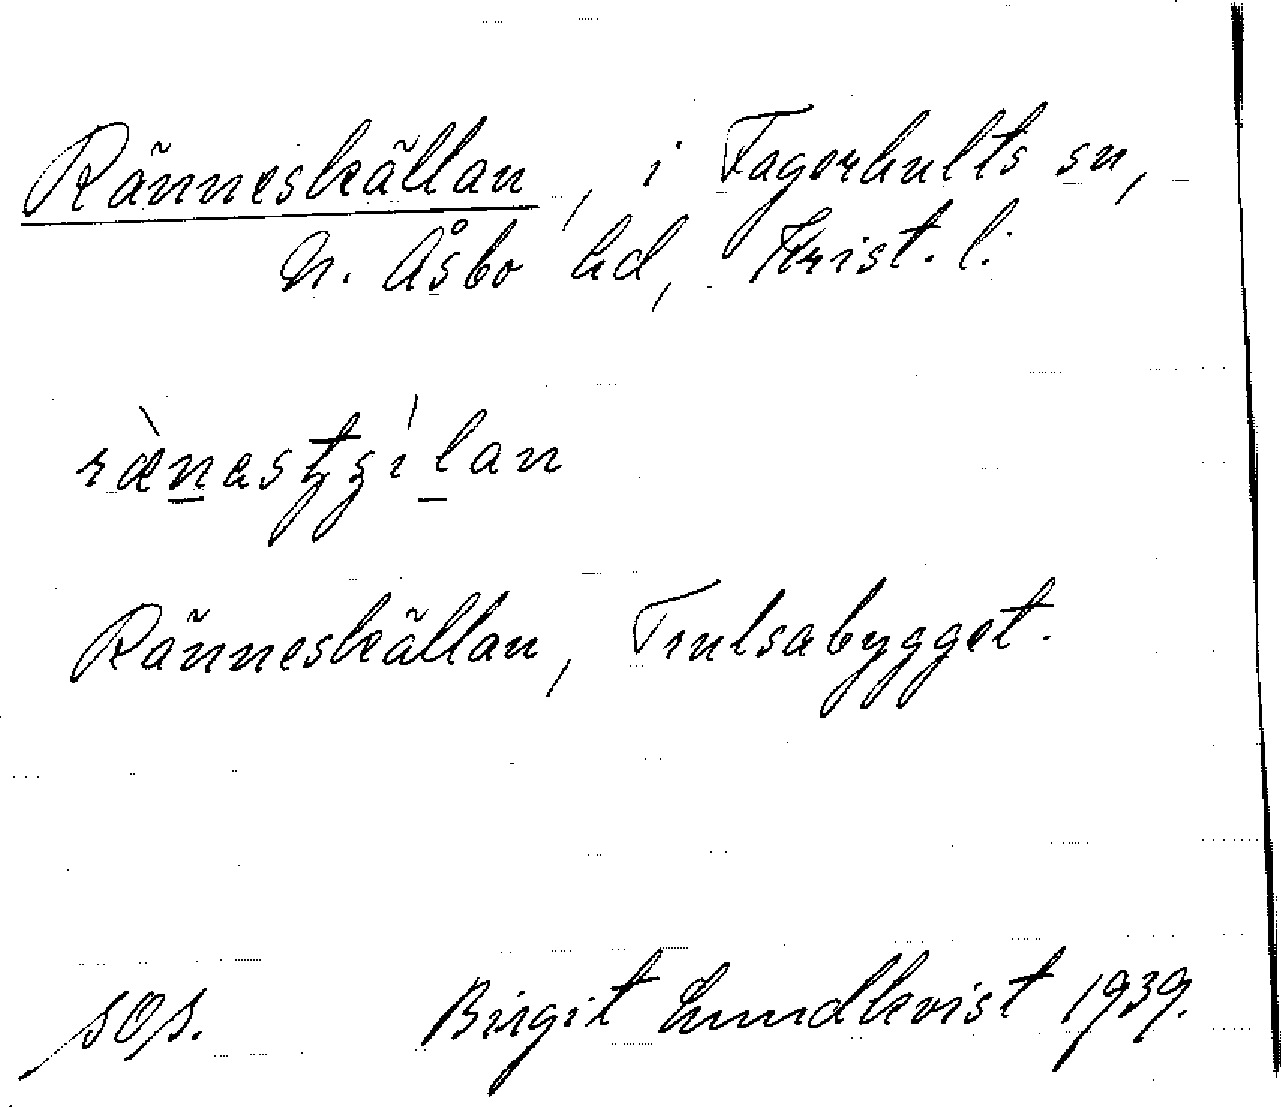 Ränneskällan, i Fagerhults sn,
N. Åsbo hd, Krist. l.
Ränneskällan, Trulsabygget.
sos. Birgit Lundkvist 1939.